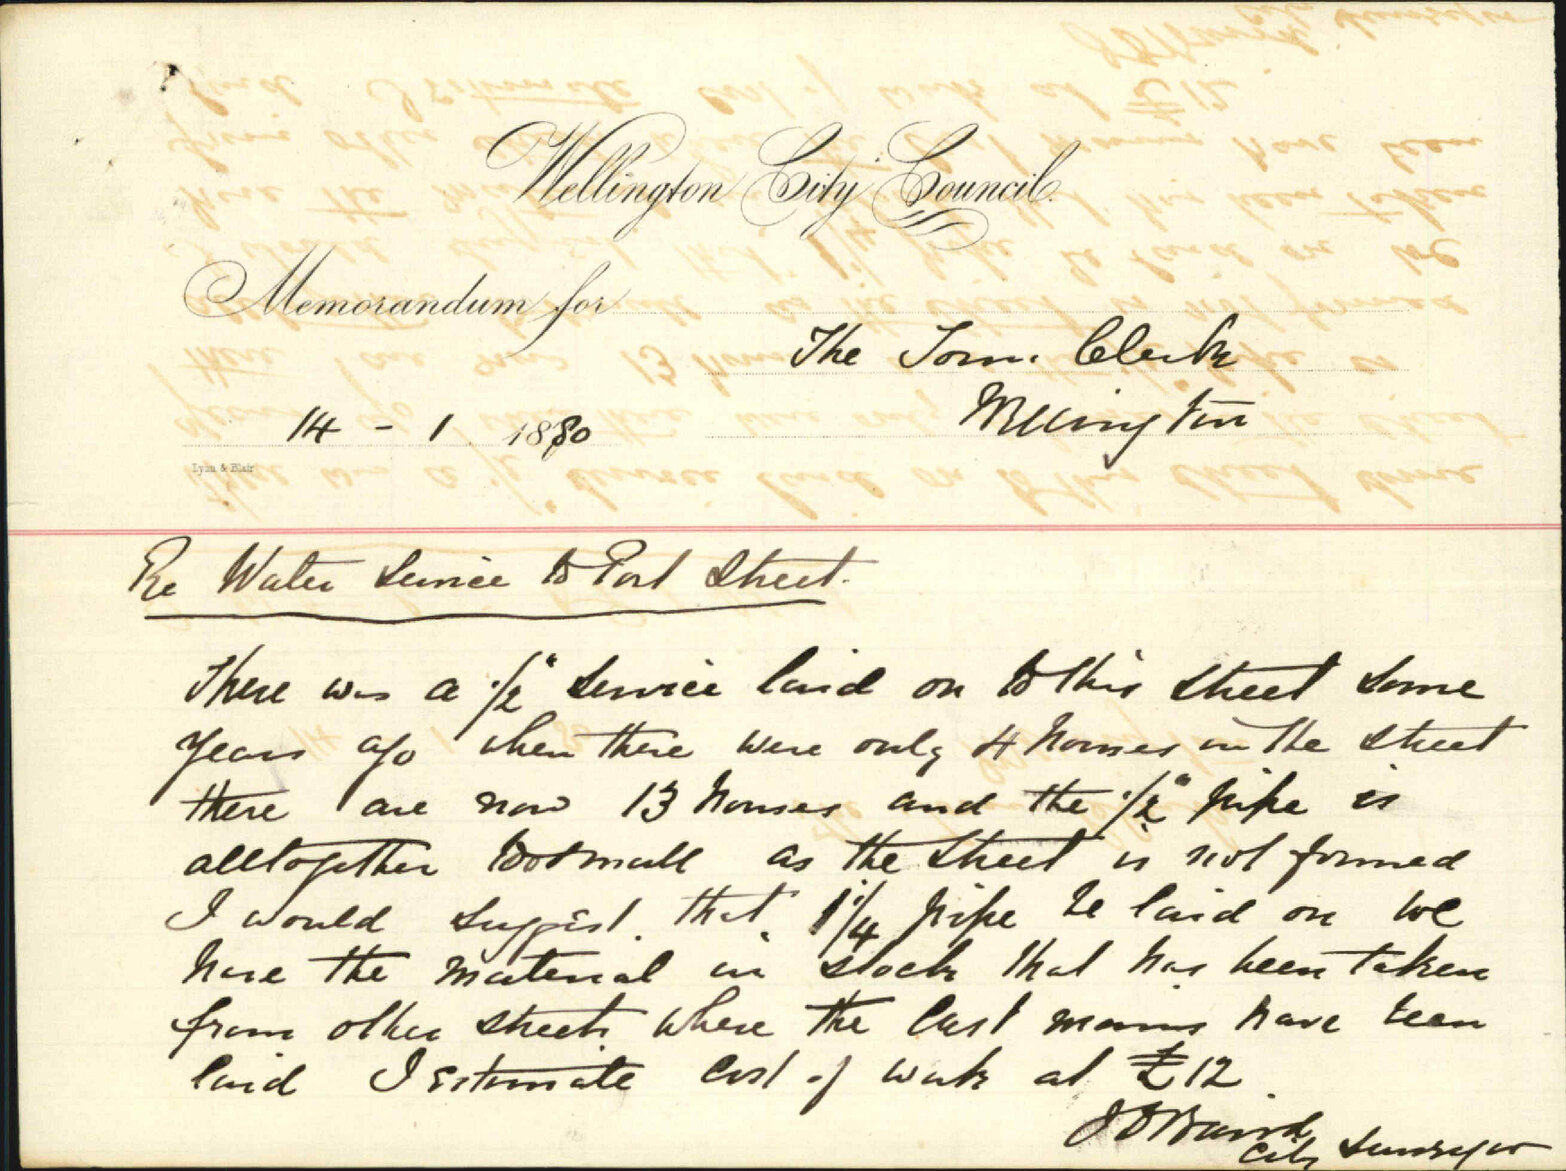 Wellington City Council.
Memorandum for
The Town Clerk
Wellington
14 - 1 1880
Lyon & Blair
Re Water Service to Port Street.
There was a 1/2" service laid on to this street some
years ago when there were only 4 houses in the street
there are now 13 houses and the 1/2" pipe is
alltogether too small as the street is not formed
I would suggest that 1 1/4 pipe be laid on we
have the material in stock that has been taken
from other streets where the last mains have been
laid I estimate cost of work at £12
J D Baird
City Surveyor